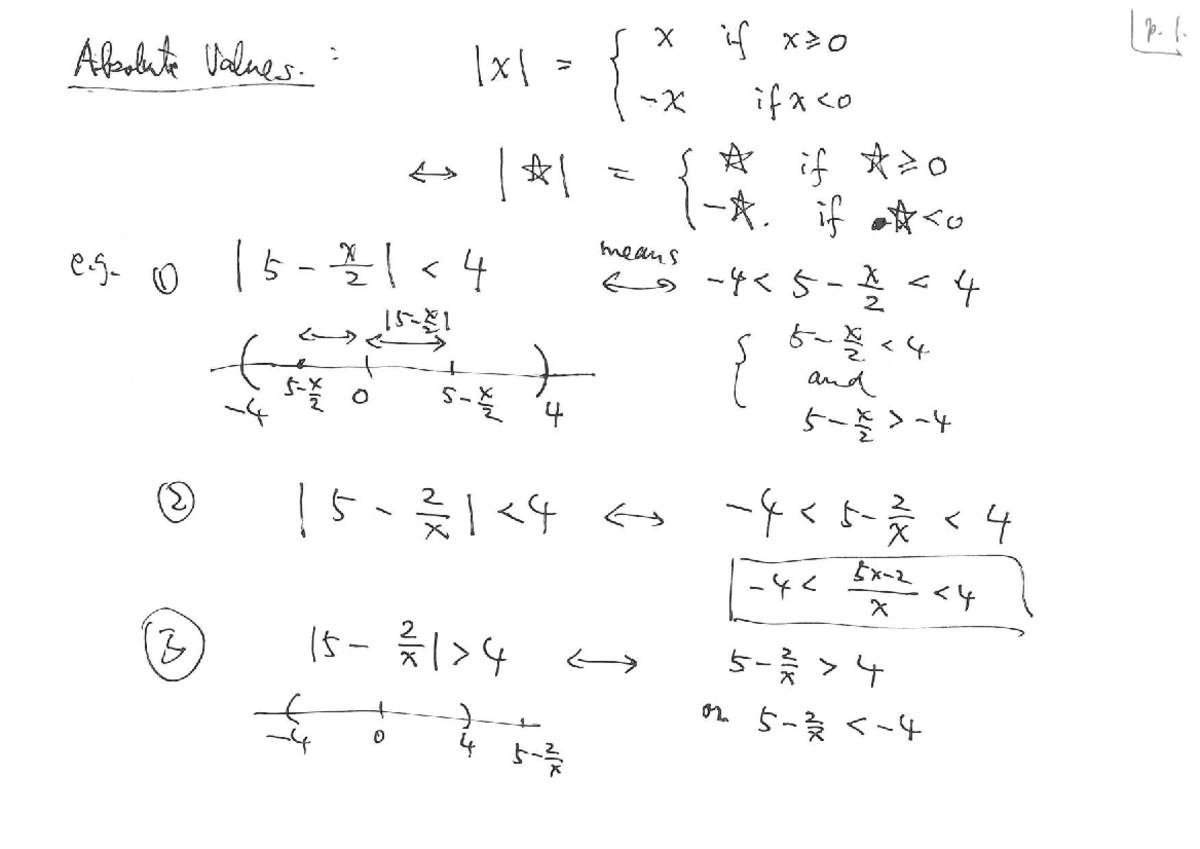 p. 1.
Absolute Values. : |x| = { x if x ≥ 0
-x if x < 0
↔ |☆| = { ☆ if ☆ ≥ 0
-☆. if ☆ < 0
e.g. ① |5 - x/2| < 4 means ↔ -4 < 5 - x/2 < 4
|5-x/2|
{ 5 - x/2 < 4
and
5 - x/2 > -4
-4 5-x/2 0 5-x/2 4
② |5 - 2/x| < 4 ↔ -4 < 5 - 2/x < 4
-4 < (5x-2)/x < 4
③ |5 - 2/x| > 4 ↔ 5 - 2/x > 4
or 5 - 2/x < -4
-4 0 4 5-2/x